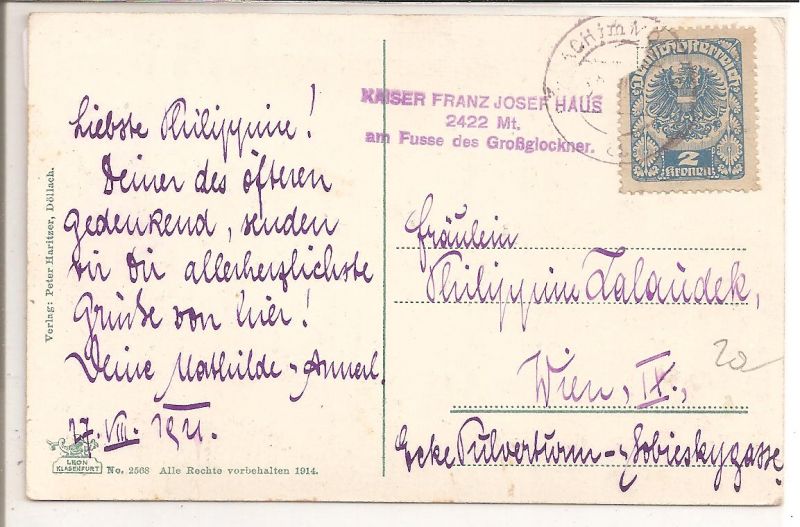 Liebste Philippine!
Deiner des öfteren
gedenkend, senden
wir Dir allerherzlichste
Grüße von hier!
Deine Mathilde-Annerl.
27. VIII. 1921.
Verlag: Peter Haritzer, Döllach.
LEON
KLAGENFURT
No. 2568 Alle Rechte vorbehalten 1914.
KAISER FRANZ JOSEF HAUS
2422 Mt.
am Fusse des Großglockner.
Deutschösterreich
2
Kronen
Fräulein
Philippine Zalaudek,
Wien, IX.,
Ecke Pulverturm-Sobieskygasse
20